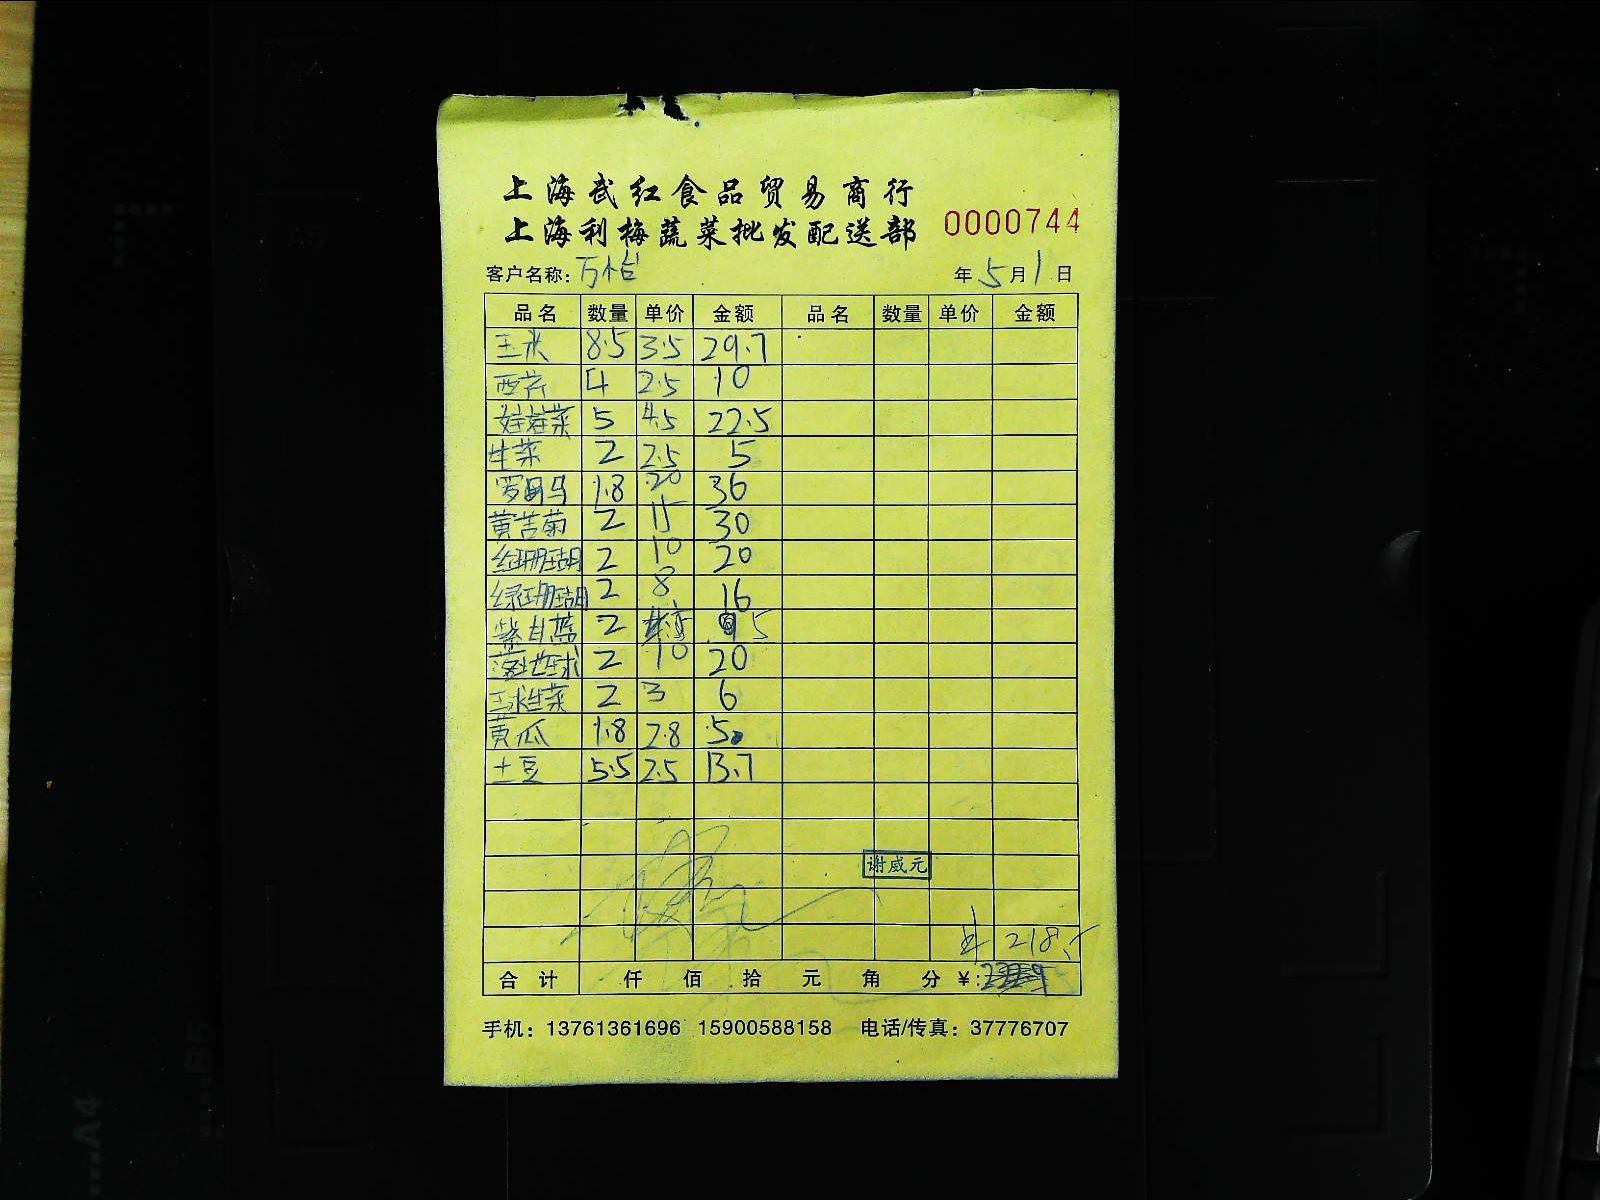 上海武红食品贸易商行
上海利梅蔬菜批发配送部 0000744
客户名称: 万怡 年 5 月 1 日
品名 数量 单价 金额 品名 数量 单价 金额
玉米 8.5 3.5 29.7
西芹 4 2.5 10
娃娃菜 5 4.5 22.5
生菜 2 2.5 5
罗马 1.8 20 36
黄苦菊 2 15 30
红珊瑚 2 10 20
绿珊瑚 2 8 16
紫甘蓝 2
落地球 2 10 20
玉球生菜 2 3 6
黄瓜 1.8 2.8 5
土豆 5.5 2.5 13.7
谢威元
218.
合计 仟 佰 拾 元 角 分 ¥:
手机: 13761361696 15900588158 电话/传真: 37776707